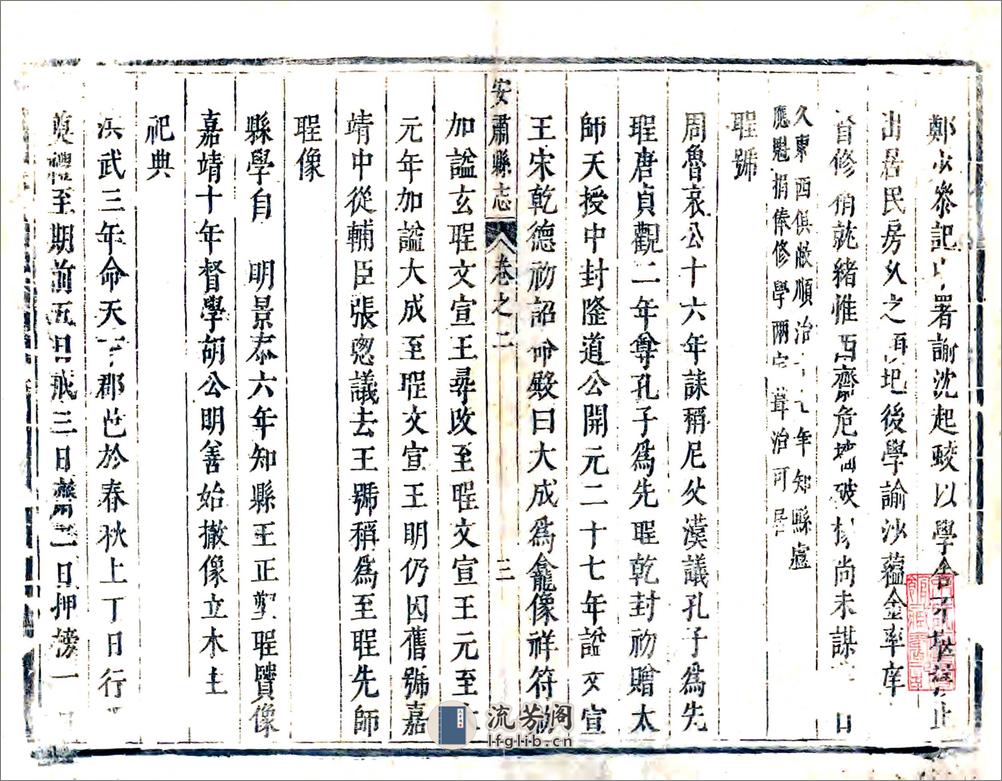 鄭以泰記中署諭沈起蛟以學舍不堪棲止
出居民房久之頹圯後學諭沙蘊金率庠
首修稍就緒惟西齋危墻破椽尚未謀 日
久東西俱敝順治十七年知縣盧
應魁捐俸修學兩齋葺治可居
聖號
周魯哀公十六年誄稱尼父漢議孔子為先
聖唐貞觀二年尊孔子為先聖乾封初贈太
師天授中封隆道公開元二十七年諡文宣
王宋乾德初詔命殿曰大成為龕像祥符初
安肅縣志 卷之二 三
加諡玄聖文宣王尋改至聖文宣王元至大
元年加諡大成至聖文宣王明仍因舊號嘉
靖中從輔臣張璁議去王號稱為至聖先師
聖像
縣學自 明景泰六年知縣王正塑聖賢像
嘉靖十年督學胡公明善始撤像立木主
祀典
洪武三年命天下郡邑於春秋上丁日行
奠禮至期前五日戒三日齋二日押榜一日
流芳閣
lfglib.cn